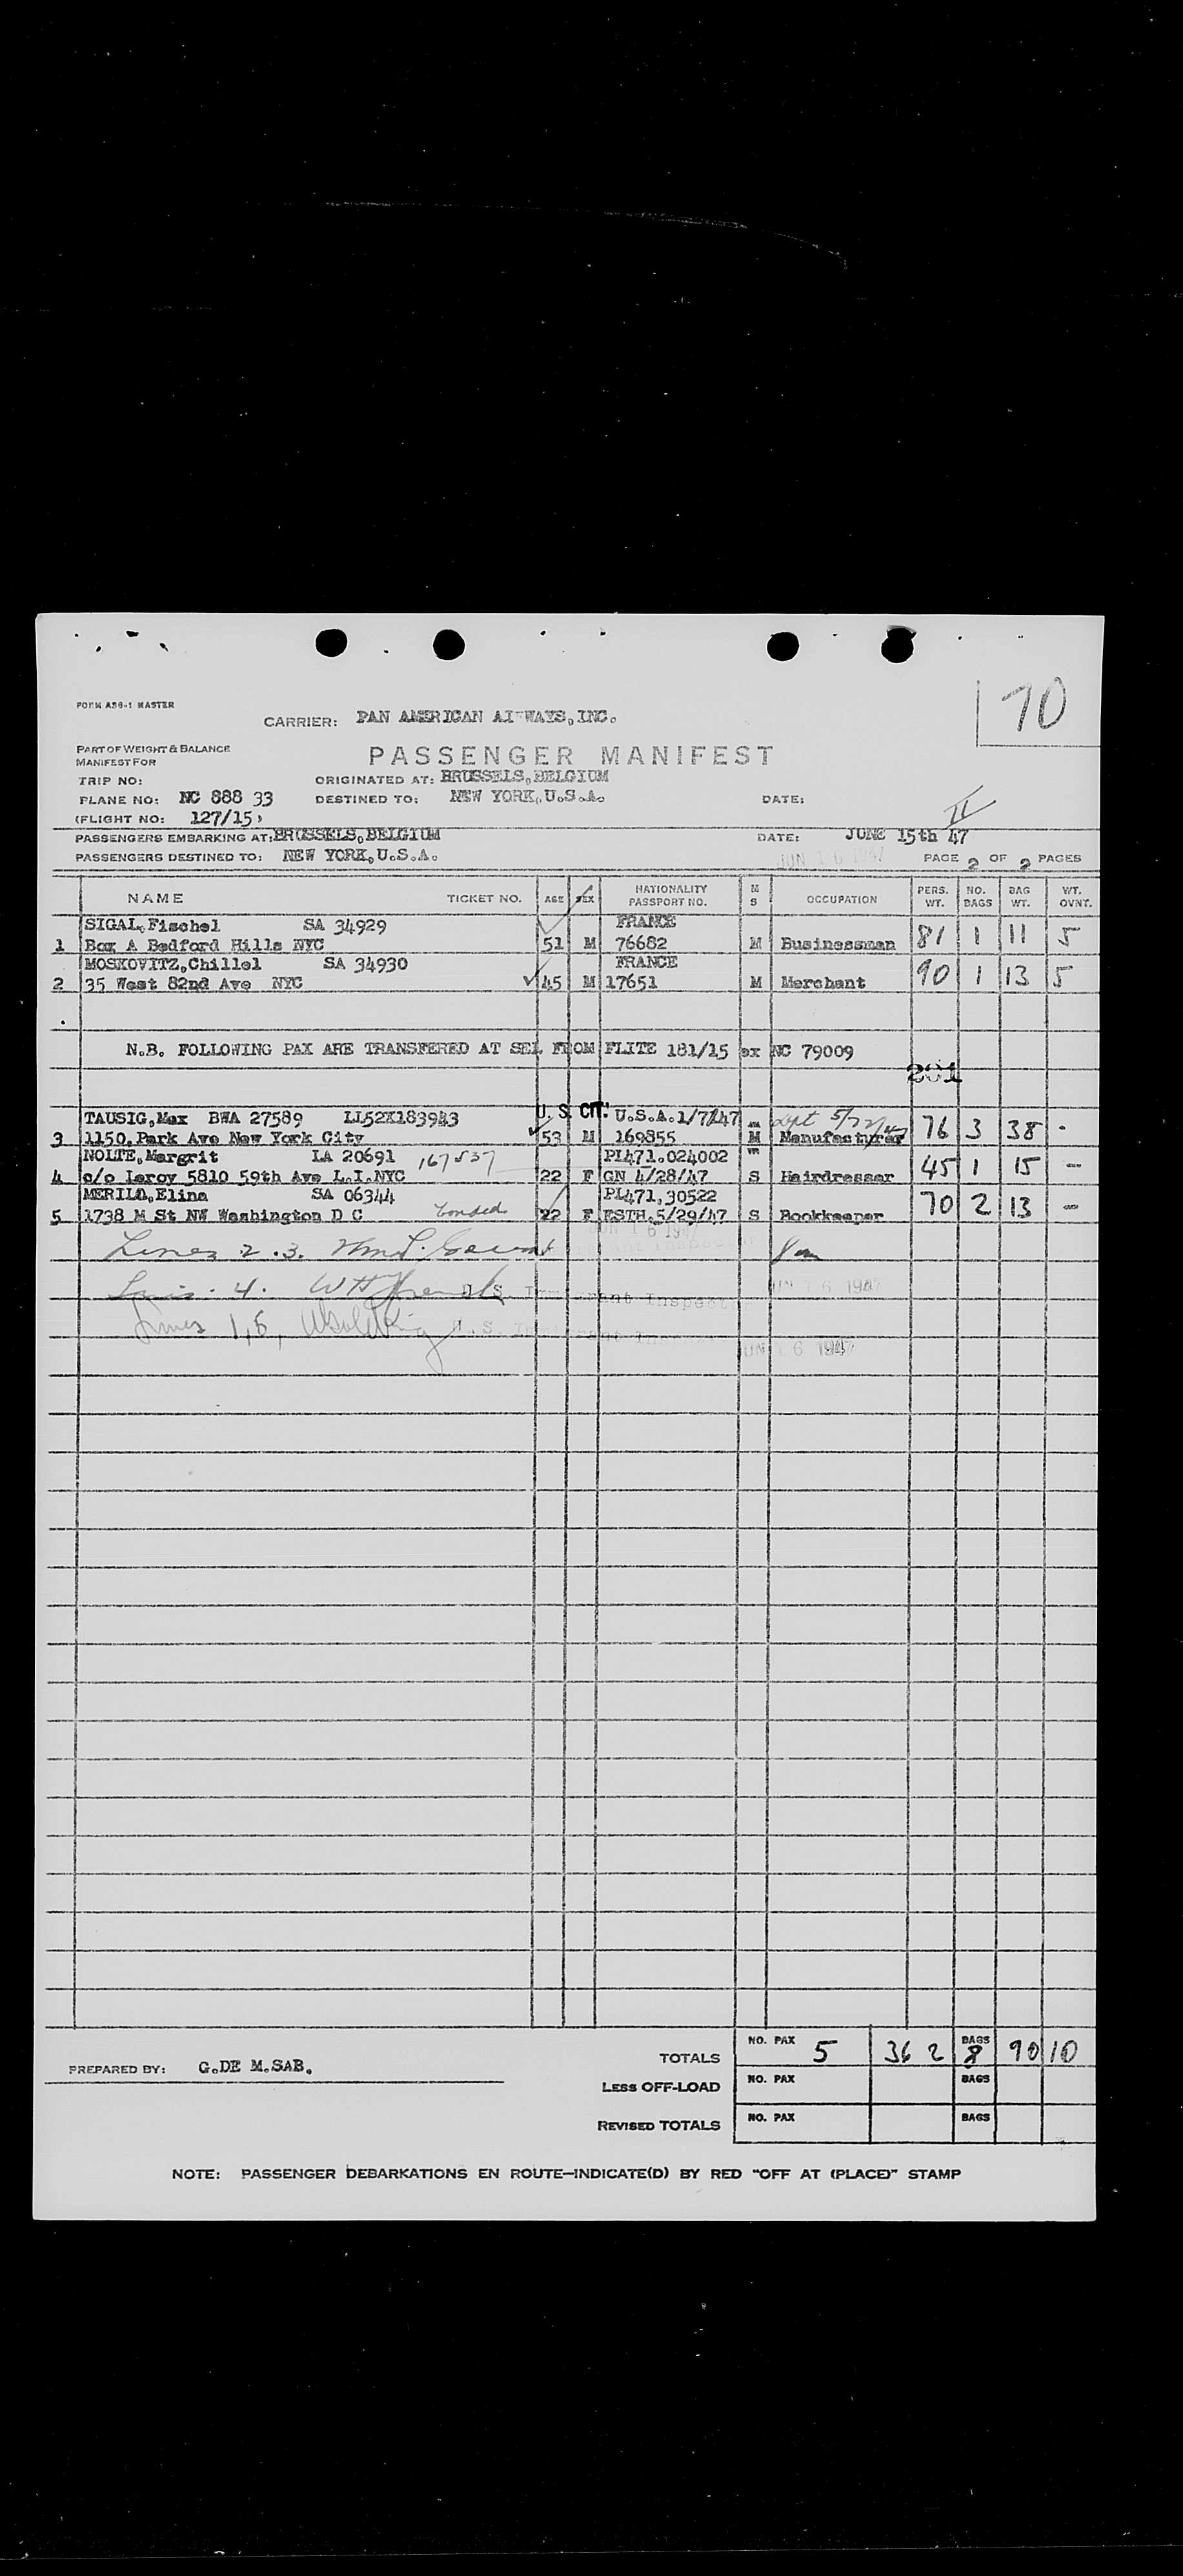 70
FORM AS6-1 MASTER
CARRIER: PAN AMERICAN AIRWAYS, INC.
PART OF WEIGHT & BALANCE
MANIFEST FOR
PASSENGER MANIFEST
TRIP NO: ORIGINATED AT: BRUSSELS, BELGIUM
PLANE NO: NC 888 33 DESTINED TO: NEW YORK, U.S.A. DATE: II
(FLIGHT NO: 127/15)
PASSENGERS EMBARKING AT: BRUSSELS, BELGIUM DATE: JUNE 15th 47
PASSENGERS DESTINED TO: NEW YORK, U.S.A. JUN 16 1947 PAGE 2 OF 2 PAGES
NAME TICKET NO. AGE SEX NATIONALITY PASSPORT NO. M S OCCUPATION PERS. WT. NO. BAGS BAG WT. WT. OVNT.
SIGAL, Fischel SA 34929 FRANCE
1 Box A Bedford Hills NYC 51 M 76682 M Businessman 81 1 11 5
MOSKOVITZ, Chillel SA 34930 FRANCE
2 35 West 82nd Ave NYC 45 M 17651 M Merchant 90 1 13 5
N.B. FOLLOWING PAX ARE TRANSFERED AT SEL FROM FLITE 181/15 ex NC 79009
201
TAUSIG, Max BWA 27589 LL52X183943 U. S. CIT. U.S.A. 1/7/47 dpt 5/22/47
3 1150, Park Ave New York City 53 M 169855 M Manufacturer 76 3 38 -
NOLTE, Margrit LA 20691 167537 PI471.024002
4 c/o Leroy 5810 59th Ave L.I. NYC 22 F GN 4/28/47 S Hairdresser 45 1 15 -
MERILO, Elina SA 06344 PI471,30522
5 1738 M St NW Washington D C bonded 22 F ESTH. 5/29/47 S Bookkeeper 70 2 13 -
Lines 2.3. JUN 16 1947
4. U.S. Immigrant Inspector JUN 16 1947
Lines 1,5, U.S. Immigrant Inspector JUN 16 1947
PREPARED BY: G. DE M. SAB.
TOTALS NO. PAX 5 362 BAGS 8 90 10
LESS OFF-LOAD NO. PAX BAGS
REVISED TOTALS NO. PAX BAGS
NOTE: PASSENGER DEBARKATIONS EN ROUTE—INDICATE(D) BY RED "OFF AT (PLACE)" STAMP